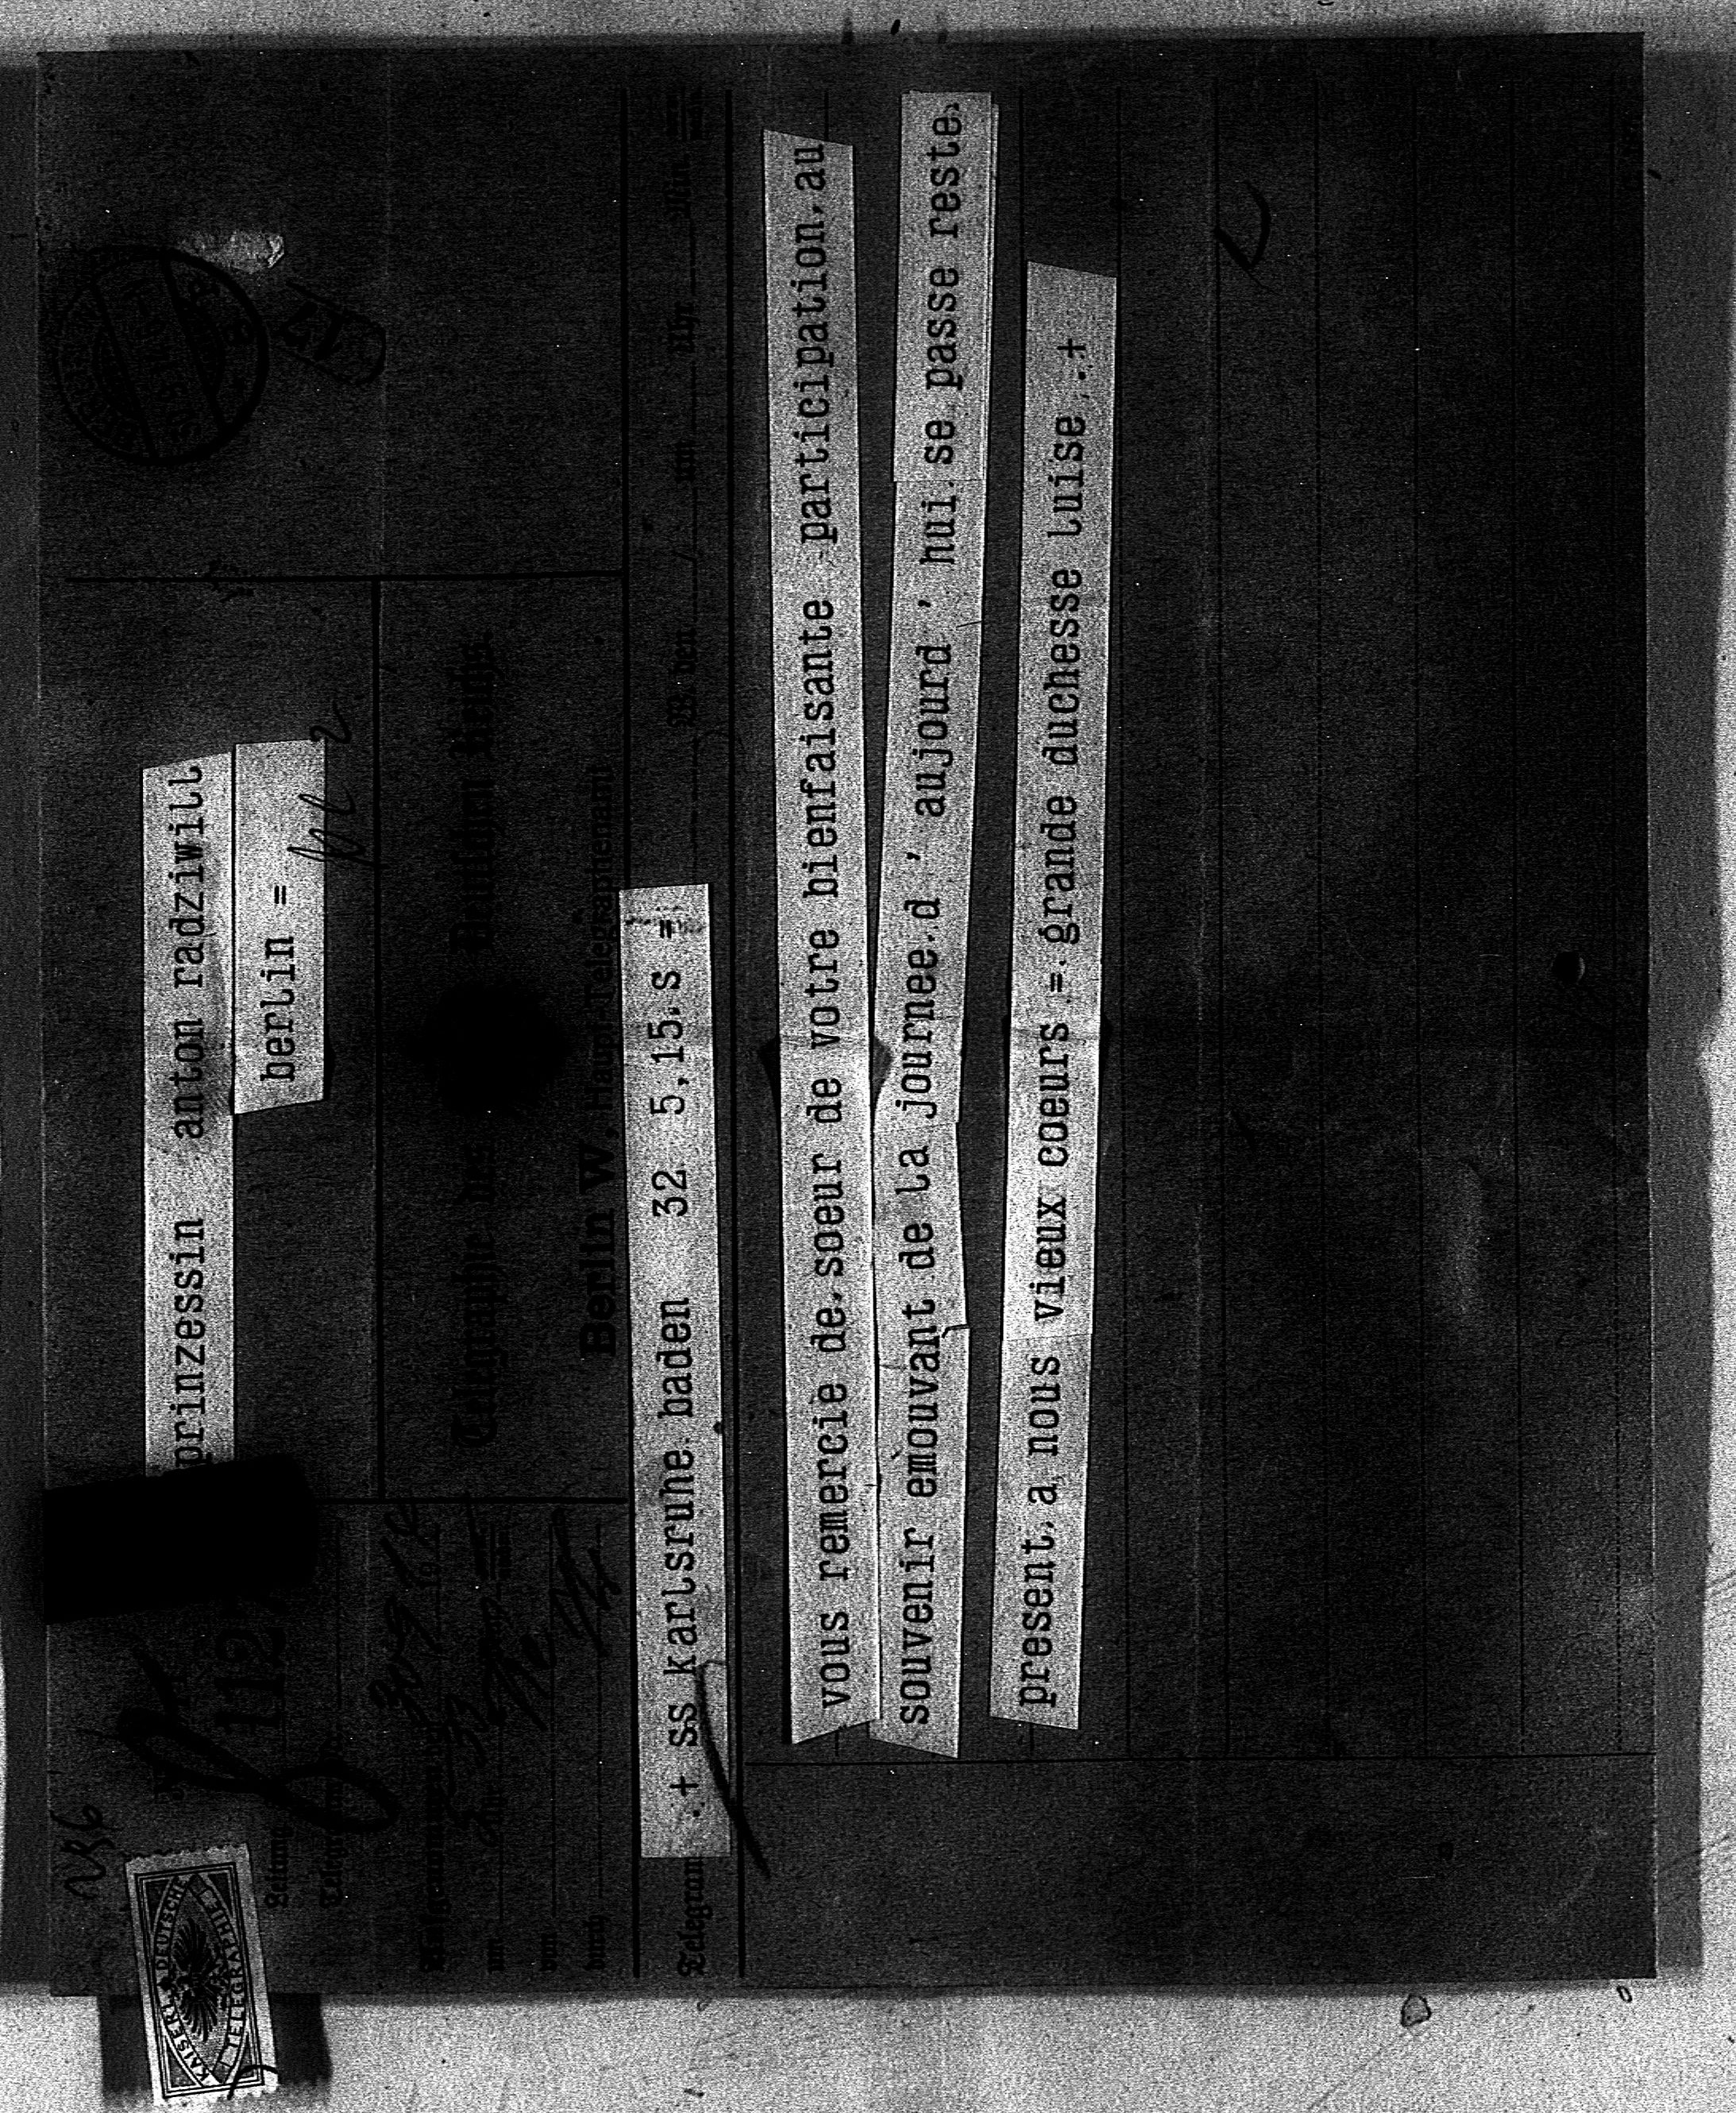 236
KAISERL. DEUTSCHE
TELEGRAPHIE
112
prinzessin anton radziwill
berlin =
17
Telegraphie des Deutschen Reichs.
Berlin W. Haupt-Telegraphenamt
Telegramm .+ ss karlsruhe. baden 32 5,15. s =
vous remercie de. soeur de votre bienfaisante participation. au
souvenir emouvant de la journee. d ' aujourd ' hui. se. passe reste.
present. a. nous vieux coeurs =. grande duchesse luise . .+